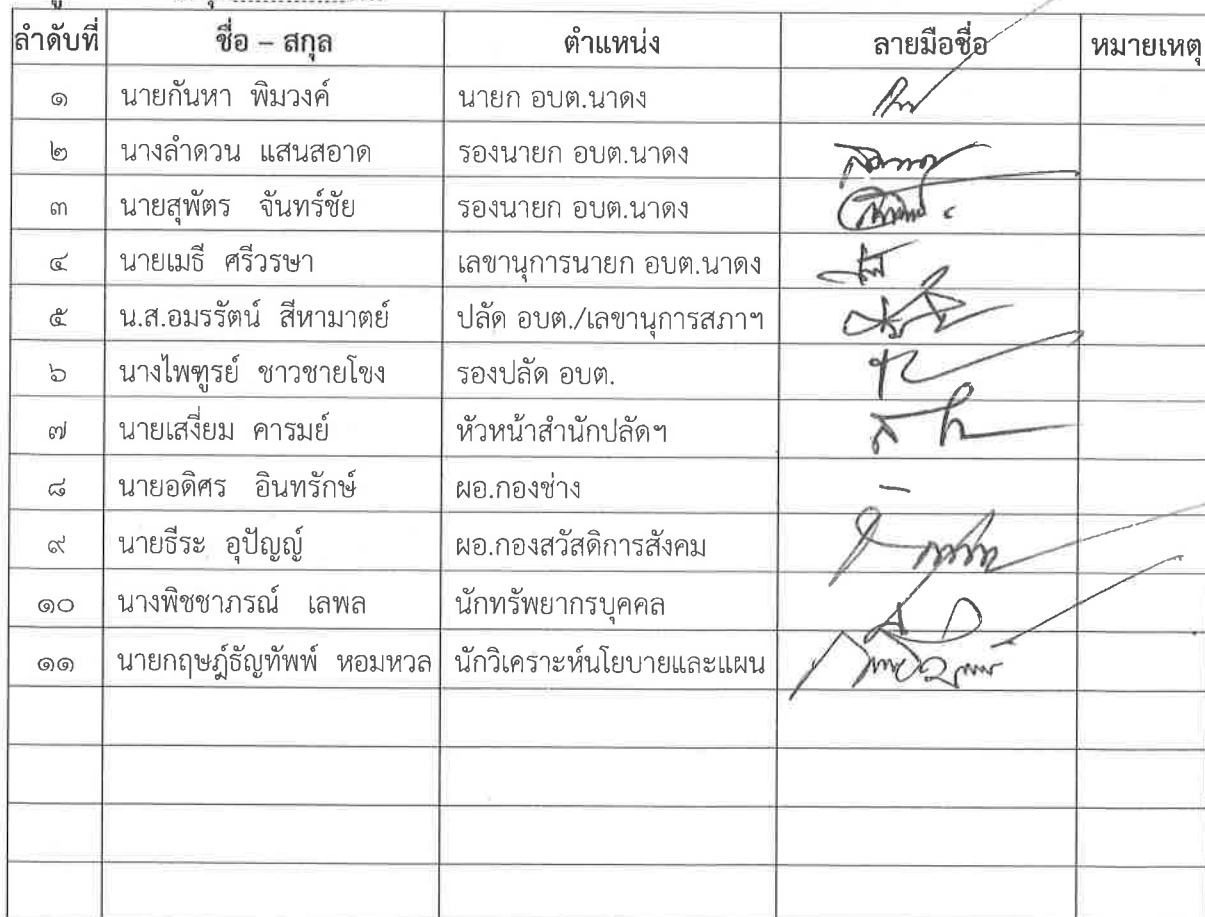 ลำดับที่ ชื่อ – สกุล ตำแหน่ง ลายมือชื่อ หมายเหตุ
๑ นายกันหา พิมวงค์ นายก อบต.นาดง
๒ นางลำดวน แสนสอาด รองนายก อบต.นาดง
๓ นายสุพัตร จันทร์ชัย รองนายก อบต.นาดง
๔ นายเมธี ศรีวรษา เลขานุการนายก อบต.นาดง
๕ น.ส.อมรรัตน์ สีหามาตย์ ปลัด อบต./เลขานุการสภาฯ
๖ นางไพฑูรย์ ชาวชายโขง รองปลัด อบต.
๗ นายเสงี่ยม คารมย์ หัวหน้าสำนักปลัดฯ
๘ นายอดิศร อินทรักษ์ ผอ.กองช่าง –
๙ นายธีระ อุปัญญ์ ผอ.กองสวัสดิการสังคม
๑๐ นางพิชชาภรณ์ เลพล นักทรัพยากรบุคคล
๑๑ นายกฤษฎ์ธัญทัพพ์ หอมหวล นักวิเคราะห์นโยบายและแผน